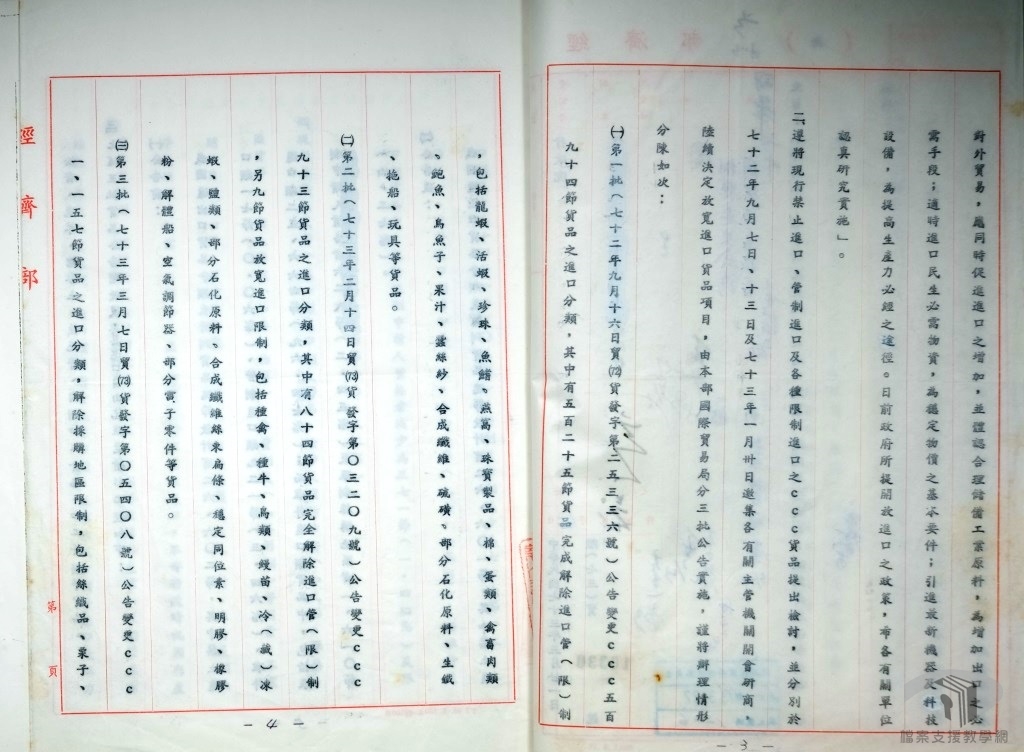 對外貿易，應同時促進進口之增加，並體認合理儲備工業原料，為增加出口之必
需手段；適時進口民生必需物資，為穩定物價之基本要件；引進最新機器及科技
設備，為提高生產力必經之途徑。日前政府所提開放進口之政策，希各有關單位
認真研究實施」。
二、遵將現行禁止進口、管制進口及各種限制進口之ＣＣＣ貨品提出檢討，並分別於
七十二年九月七日、十三日及七十三年一月卅日邀集各有關主管機關開會研商，
陸續決定放寬進口貨品項目，由本部國際貿易局分三批公告實施，謹將辦理情形
分陳如次：
㈠第一批（七十二年九月十六日貿(72)貨發字第二五三三六號）公告變更ＣＣＣ五百
九十四節貨品之進口分類，其中有五百二十五節貨品完成解除進口管（限）制
－3－
，包括龍蝦、活蝦、珍珠、魚鰭、燕窩、珠寶製品、棉、蛋類、禽畜肉類
、鮑魚、烏魚子、果汁、蠶絲紗、合成纖維、硫磺、部分石化原料、生鐵
、拖船、玩具等貨品。
㈡第二批（七十三年二月十四日貿(73)貨發字第０三二０九號）公告變更ＣＣＣ
九十三節貨品之進口分類，其中有八十四節貨品完全解除進口管（限）制
，另九節貨品放寬進口限制，包括種禽、種牛、鳥類、鰻苗、冷（藏）凍
蝦、鹽類、部分石化原料、合成纖維絲束扁條、穩定同位素、明膠、橡膠
粉、解體船、空氣調節器、部分電子零件等貨品。
㈢第三批（七十三年三月七日貿(73)貨發字第０五四０八號）公告變更ＣＣＣ
一、一五七節貨品之進口分類，解除採購地區限制，包括絲織品、栗子、
經濟部
第　頁
檔案支援教學網